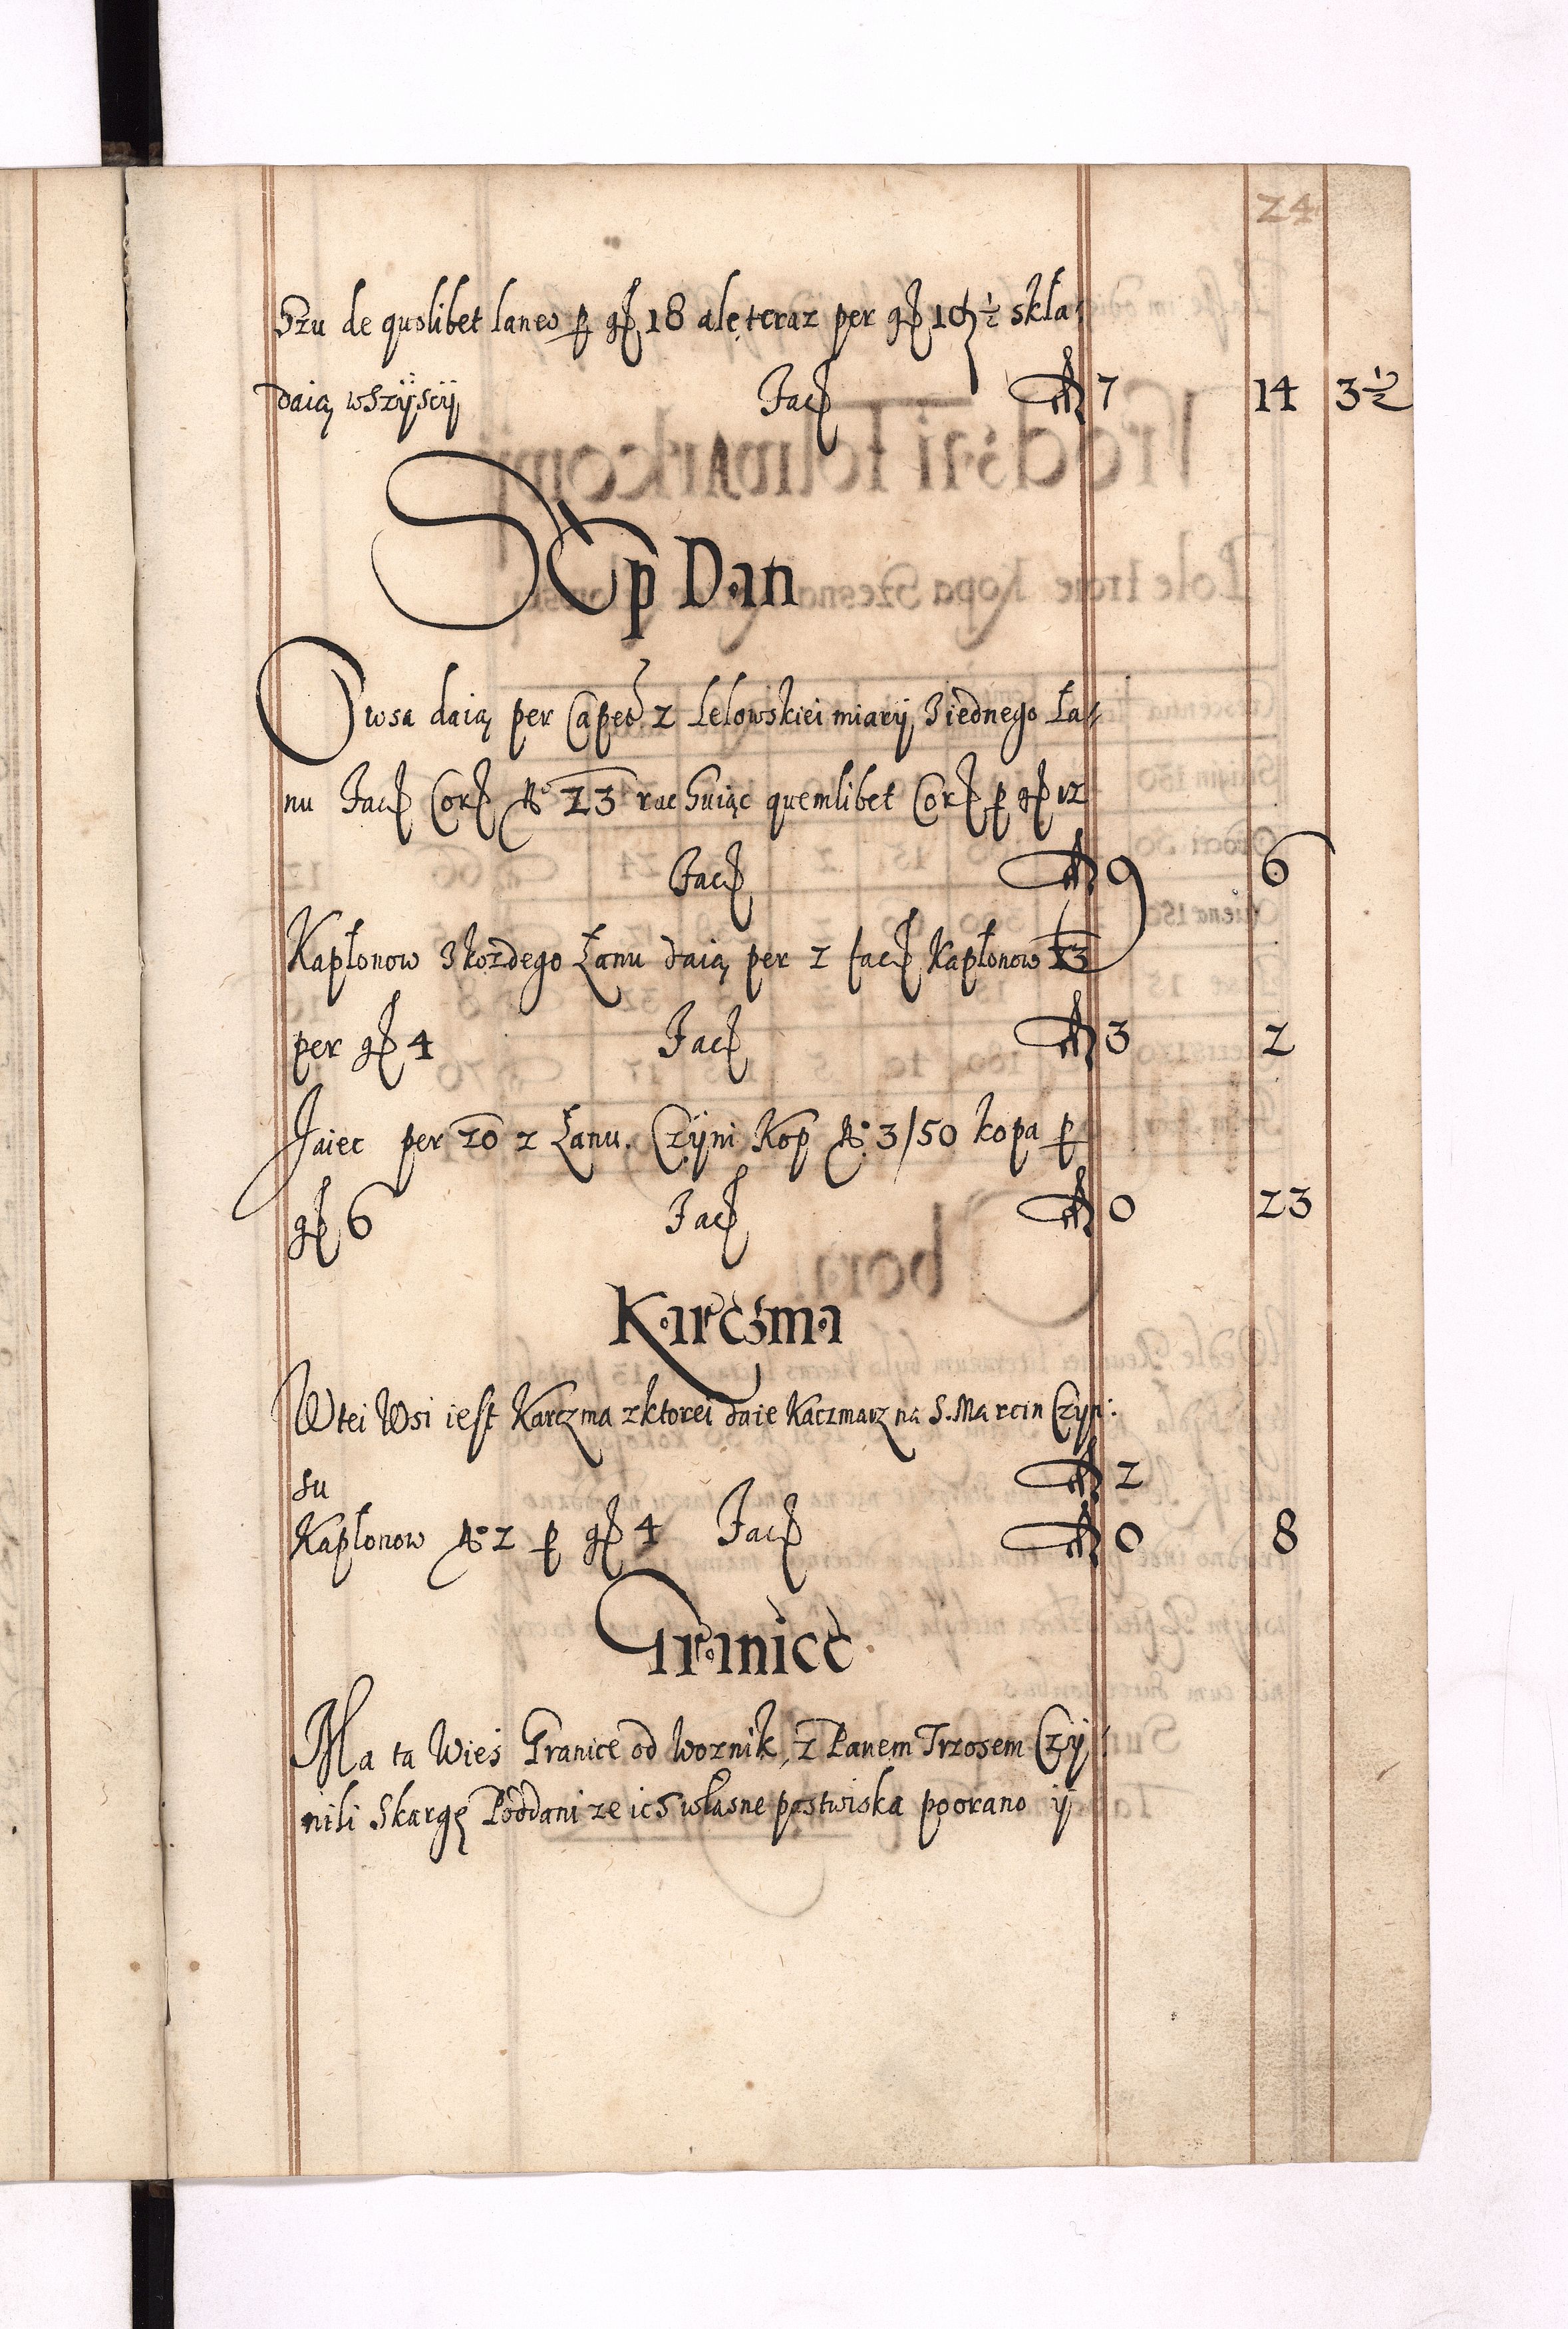 24
szu de quolibet laneo p gſ 18 ale teraz per gſ 19½ skła⸗
daią wszÿscÿ Facſ fl 7 14 3½
SEp Dan
Owsa daią per Capet z Lelowskiei miarÿ z iednego Ła⸗
nu Facſ Corſ No 23 rachuiąc quemlibet Corſ p gſ 12
Facſ fl 9 6
Kapłonow z kozdego Łanu daią per 2 facſ Kapłonow 23
per gſ 4 Facſ fl 3 2
Jaiec per 20 z Łanu. Czÿni Kop No: 3/50 kopa p
gſ 6 Facſ fl 0 23
Karczma
W tei Wsi iest Karczma z ktorei daie Kaczmarz na S. Marcin Czÿn:
su fl 2
Kapłonow No 2 p gſ 4 Facſ fl 0 8
Granice
Ma ta Wieś Granice od Woznik, z Panem Trzosem Czÿ⸗
nili Skargę Poddani ze ich własne pastwiska poorano ÿ